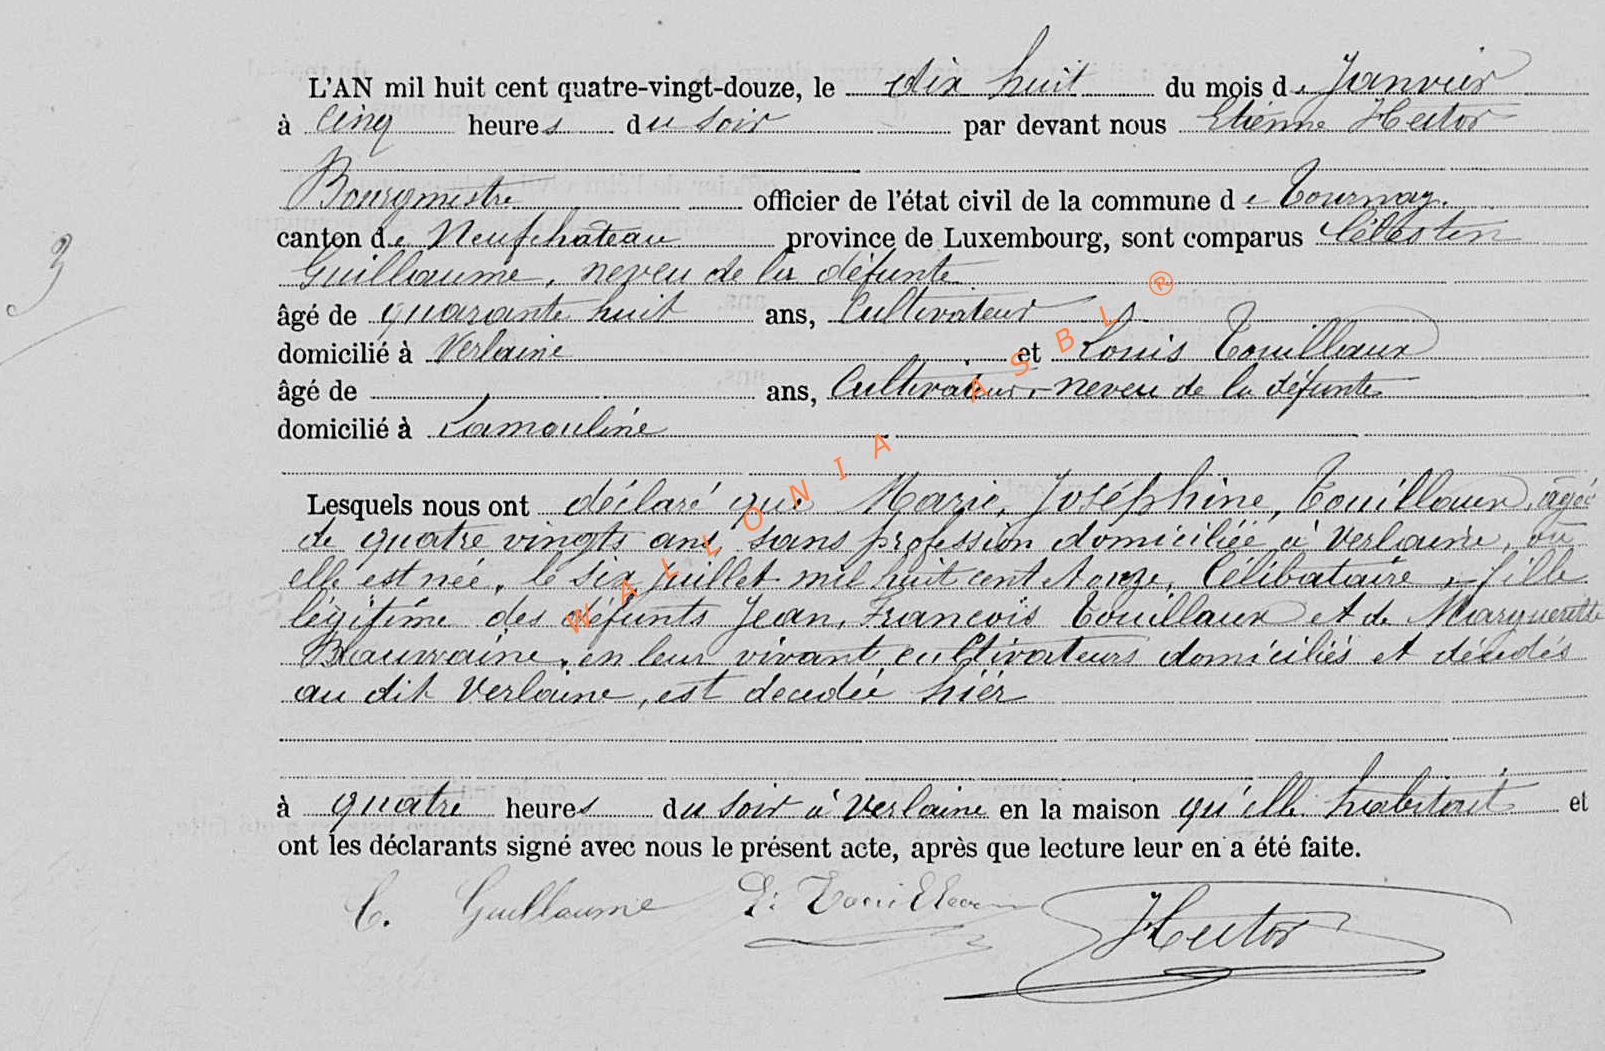 L'AN mil huit cent quatre-vingt-douze, le dix huit du mois de Janvier
à cinq heures du soir par devant nous Etienne Hector
Bourgmestre officier de l'état civil de la commune de Tournay.
canton de Neufchâteau province de Luxembourg, sont comparus Célestin
Guillaume, neveu de la défunte
âgé de quarante huit ans, Cultivateur
domicilié à Verlaine et Louis Touillaux
âgé de ans, Cultivateur, neveu de la défunte
domicilié à Lamouline
3
Lesquels nous ont déclaré que Marie, Joséphine, Touillaux, âgée
de quatre vingts ans, sans profession domiciliée à Verlaine, où
elle est née, le six juillet mil huit cent et onze, Célibataire, fille
légitime des défunts Jean, François Touillaux et de Marguerite
en leur vivant cultivateurs domiciliés et décédés
au dit Verlaine, est decedée hiér
à quatre heures du soir à Verlaine en la maison qu'elle habitait et
ont les déclarants signé avec nous le présent acte, après que lecture leur en a été faite.
C. Guillaume Ls Touillaux Hector
WALLONIA ASBL ®